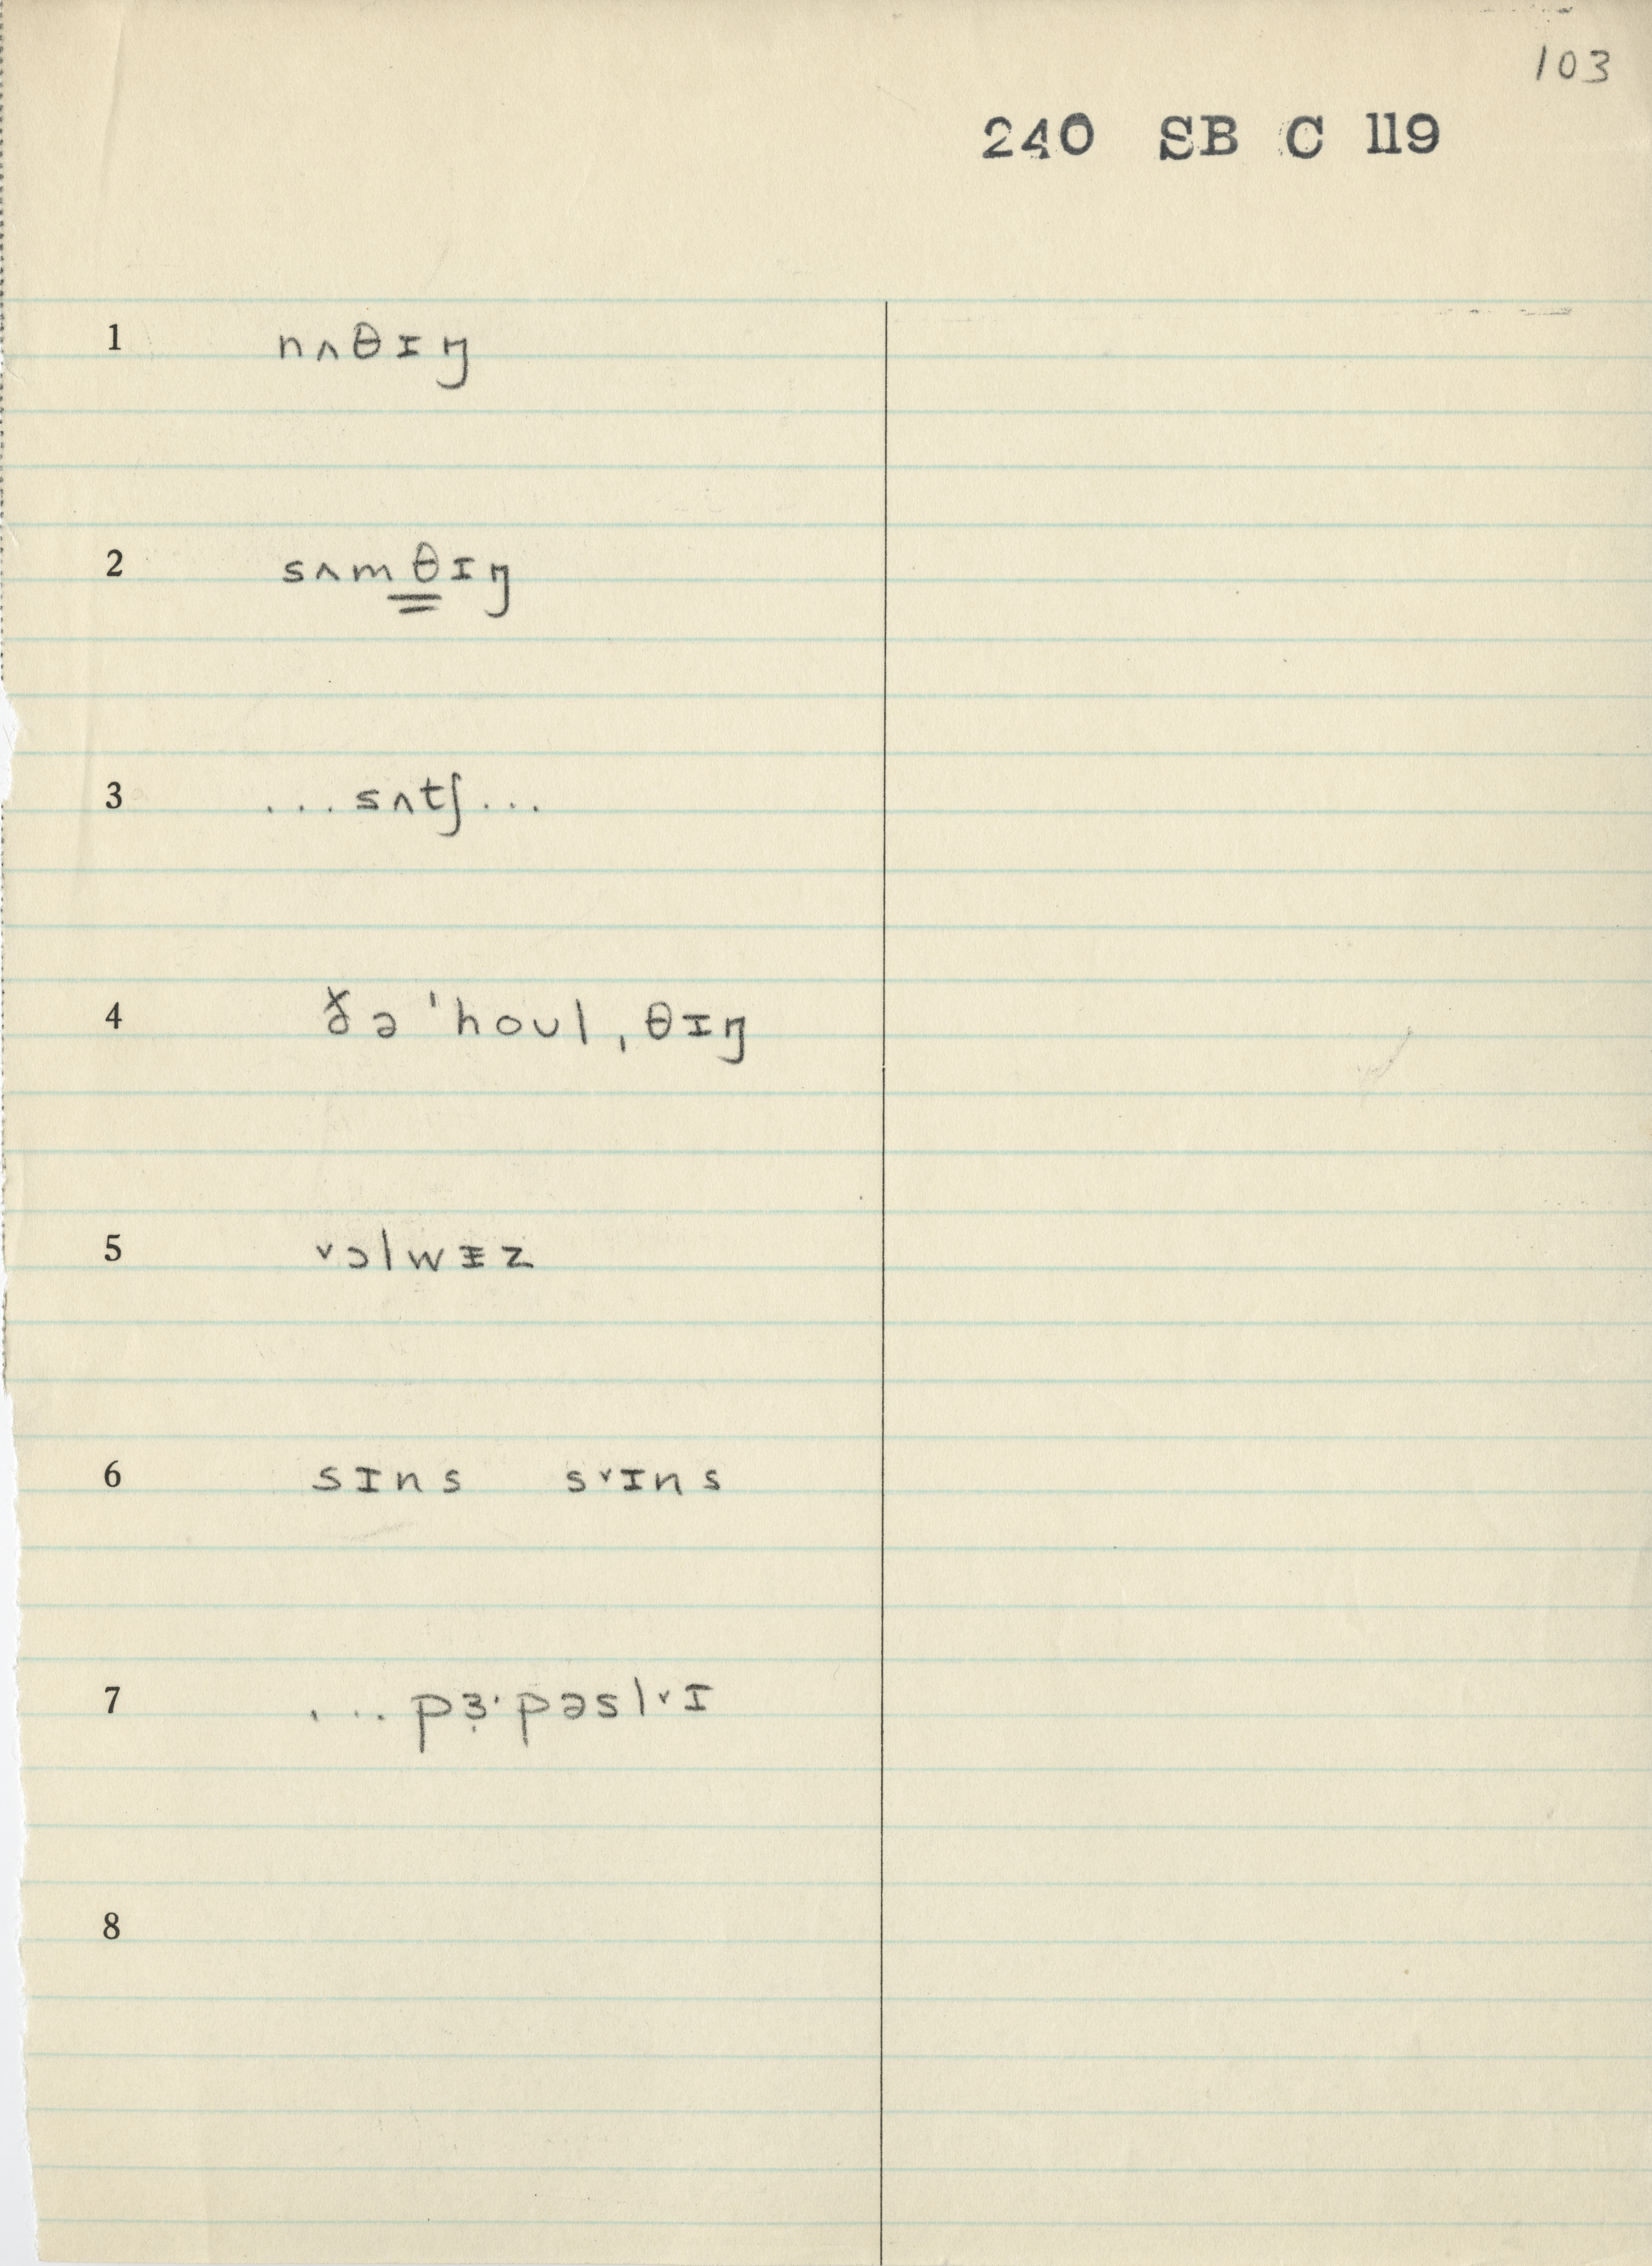 103
240 SB C 119
1 nʌθɪŋ
2 sʌmθɪŋ
3 ...sʌtʃ...
4 ðə ˈhoʊl ˌθɪŋ
5 ˅ɔlwɪz
6 sɪns s˅ɪns
7 ...pɜ̣˞pəsl˅ɪ
8